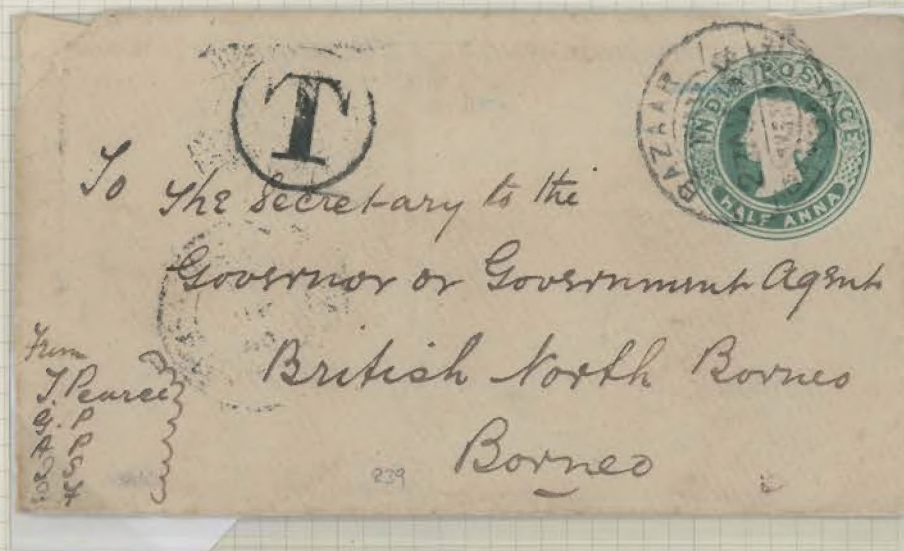 T
BAZAAR
INDIA POSTAGE
HALF ANNA
To
The Secretary to the
Governor or Government Agent
British North Borneo
Borneo
From
J. Pearce
G. P
239